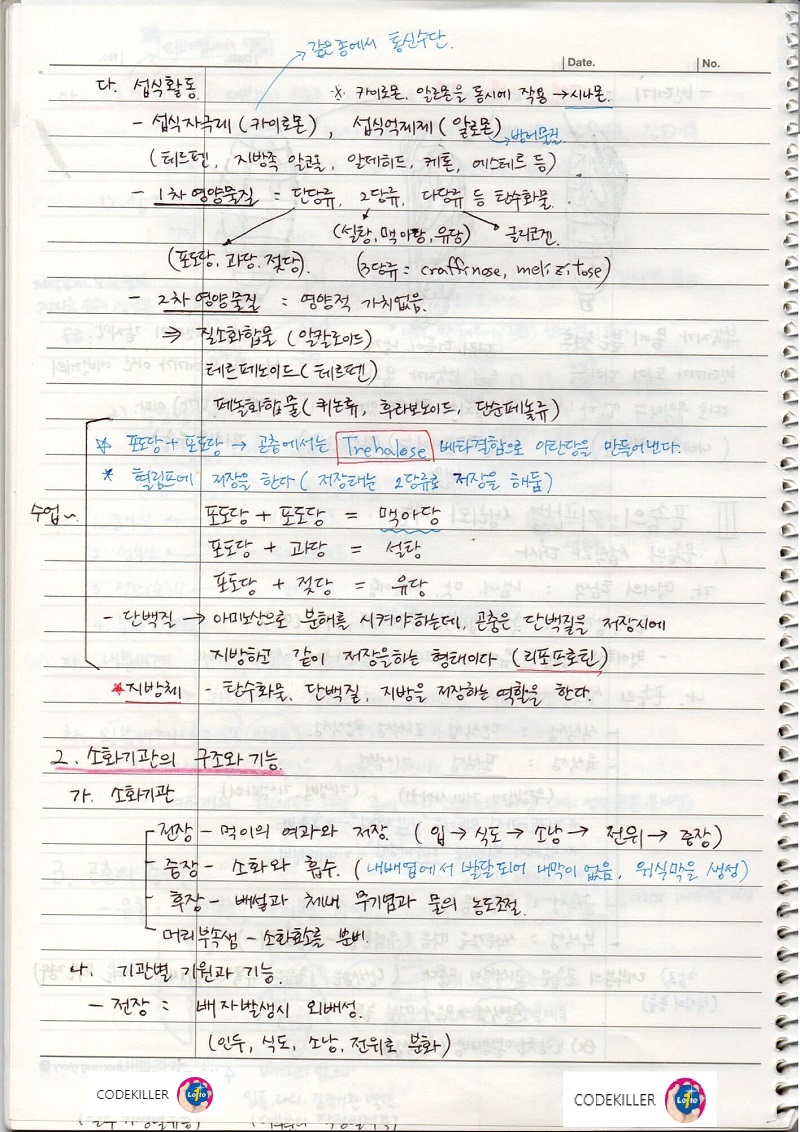 같은종에서 통신수단.
Date.
No.
다. 섭식활동. ※ 카이로몬, 알로몬을 동시에 작용 → 시나몬.
- 섭식자극제 (카이로몬), 섭식억제제 (알로몬) → 방어물질
(테르펜, 지방족 알코올, 알데히드, 케톤, 에스테르 등)
- 1차 영양물질 = 단당류, 2당류, 다당류 등 탄수화물.
(설탕, 맥아당, 유당) 글리코겐.
(포도당, 과당, 젖당). (3당류 = craffinose, melizitose)
- 2차 영양물질 = 영양적 가치없음.
⇒ 질소화합물 (알칼로이드)
테르페노이드 (테르펜)
페놀화합물 (퀴논류, 후라보노이드, 단순페놀류)
☆ 포도당 + 포도당 → 곤충에서는 Trehalose 베타결합으로 이탄당을 만들어낸다.
* 혈림프에 저장을 한다 ( 저장태는 2당류로 저장을 해둠)
수업~
포도당 + 포도당 = 맥아당
포도당 + 과당 = 설탕
포도당 + 젖당 = 유당
- 단백질 → 아미노산으로 분해를 시켜야하는데, 곤충은 단백질을 저장시에
지방하고 같이 저장을하는 형태이다 (리포프로틴)
*지방체 - 탄수화물, 단백질, 지방을 저장하는 역할을 한다.
2. 소화기관의 구조와 기능.
가. 소화기관
전장 - 먹이의 여과와 저장. ( 입 → 식도 → 소낭 → 전위 → 중장)
중장 - 소화와 흡수. (내배엽에서 발달되어 내막이 없음, 위식막을 생성)
후장 - 배설과 체내 무기염과 물의 농도조절.
머리부속샘 - 소화효소를 분비.
나. 기관별 기원과 기능.
- 전장 = 배자발생시 외배성.
(인두, 식도, 소낭, 전위로 분화)
CODEKILLER Lotto
CODEKILLER Lotto